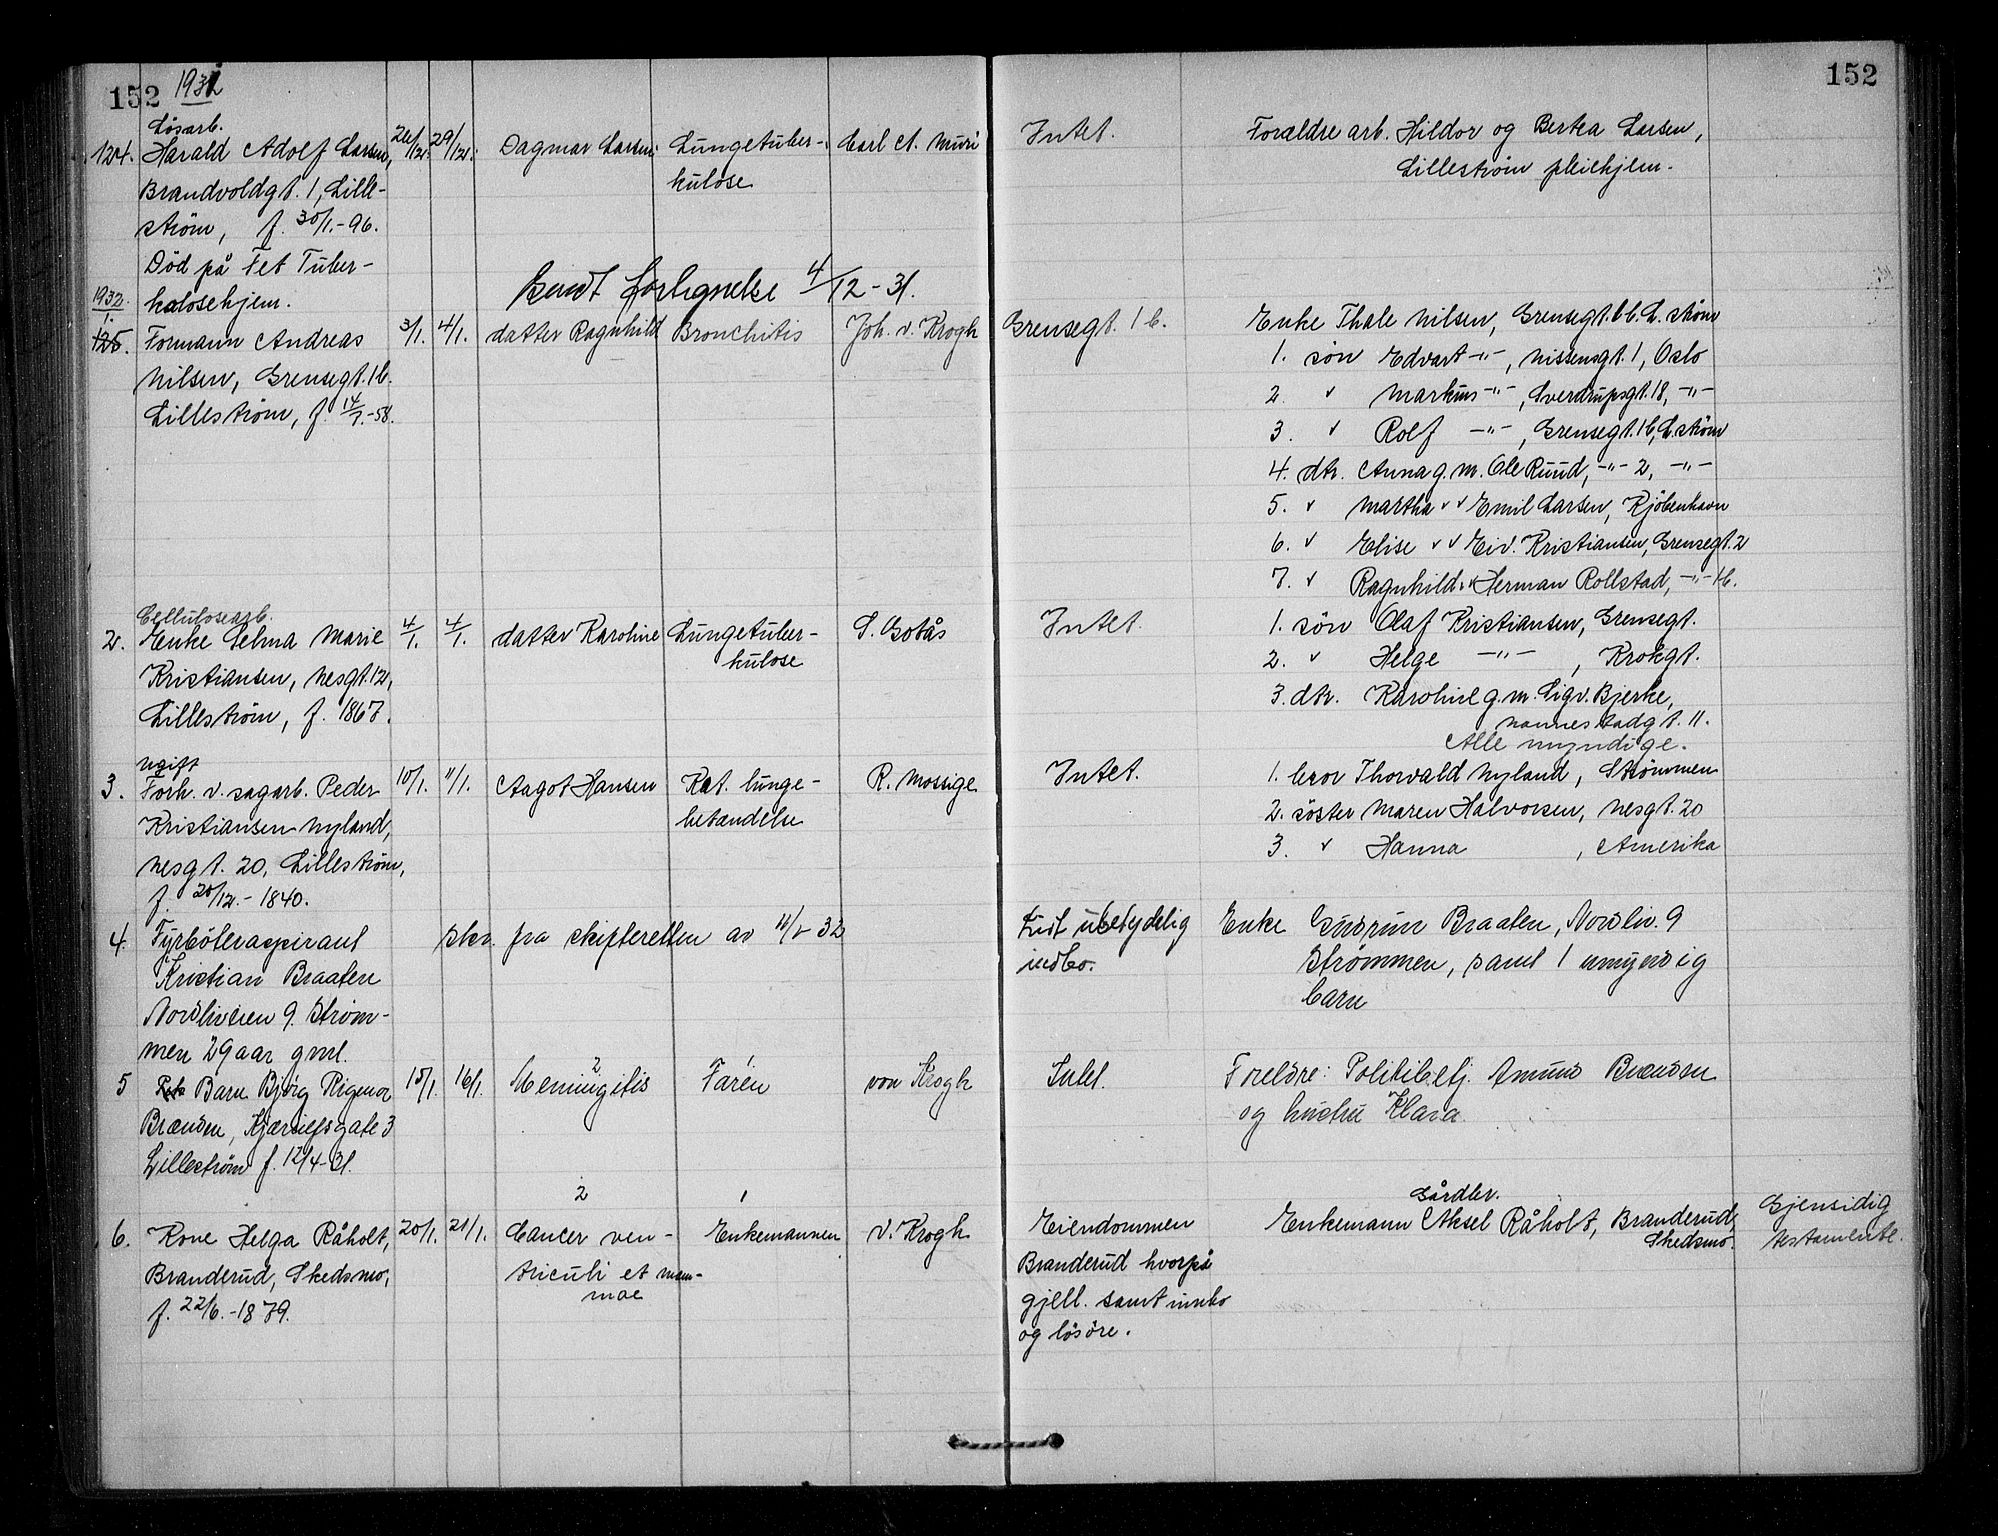 152 1932
152
Løsarb.
124. Harald Adolf Larsen, 24/12. 29/12. Dagmar Larsen Lungetuber- Carl A. Muri Intet. Forældre arb. Hildor og Bertea Larsen,
Brandvoldgt. 1, Lille- kulose Lillestrøm pleiehjem.
strøm, f. 30/1.-96.
Død på Fet Tuber-
kulosehjem. Sendt fortegnelse 4/12-31.
1932
1.
125. Formann Andreas 3/1. 4/1. datter Ragnhild Bronchitis Joh. v. Krogh Grensegt. 1 b. Enke Thale Nilsen, Grensegt. 1 b. L.strøm
Nilsen, Grensegt. 1 b. 1. søn Edvart -"-, Nissensgt. 1, Oslo
Lillestrøm, f. 14/7.-58. 2. " Markus -"-, Sverdrupsgt. 18, -"-
3. " Rolf -"-, Grensegt. 1 b, L.strøm
4. dtr. Anna g.m. Ole Ruud, -"- 2, -"-
5. " Martha " " Emil Larsen, Kjøbenhavn
6. " Elise " " Eiv. Kristiansen, Grensegt. 2
7. " Ragnhild " " Herman Rollstad, -"- 1 b.
Cellulosearb.
2. Enke Selma Marie 4/1. 4/1. datter Karoline Lungetuber- S. Gotås Intet. 1. søn Olaf Kristiansen, Grensegt.
Kristiansen, Nesgt. 12, kulose 2. " Helge -"-, Krokgt.
Lillestrøm, f. 1867. 3. dtr. Karoline g.m. Sigv. Bjerke,
Nannestadgt. 11.
Alle myndige.
ugift
3. Forh. v. sagarb. Peder 10/1. 11/1. Aagot Hansen Kat. lunge- R. Mossige Intet. 1. bror Thorvald Nyland, Strømmen
Kristiansen Nyland, betændelse 2. søster Maren Halvorsen, Nesgt. 20
Nesgt. 20, Lillestrøm, 3. " Hanna , Amerika
f. 20/12.-1840.
4. Fyrbøteraspirant skr. fra skifteretten av 11/1-32 ubetydelig Enke Gudrun Braaten, Nordliv. 9
Kristian Braaten indbo. Strømmen, samt 1 umyndig
Nordliveien 9. Strøm- barn
men 29 aar gml.
5 Barn Bjørg Rigmor 15/1. 16/1. 2 Meningitis Faren von Krogh Intet. Foreldre: Politibetj. Amund Brænden
Brænden, Kjærulfsgate 3 og hustru Klara.
Lillestrøm f. 12/4-31.
2 1 Gårdbr.
6. Kone Helga Råholt, 20/1. 21/1. Cancer ven- Enkemannen v. Krogh Eiendommen Enkemann Aksel Råholt, Branderud, Gjensidig
Branderud, Skedsmo, triculi et mam- Branderud hvorpå Skedsmo. testamente.
f. 22/6.-1879. mae gjell. samt innbo
og løsøre.